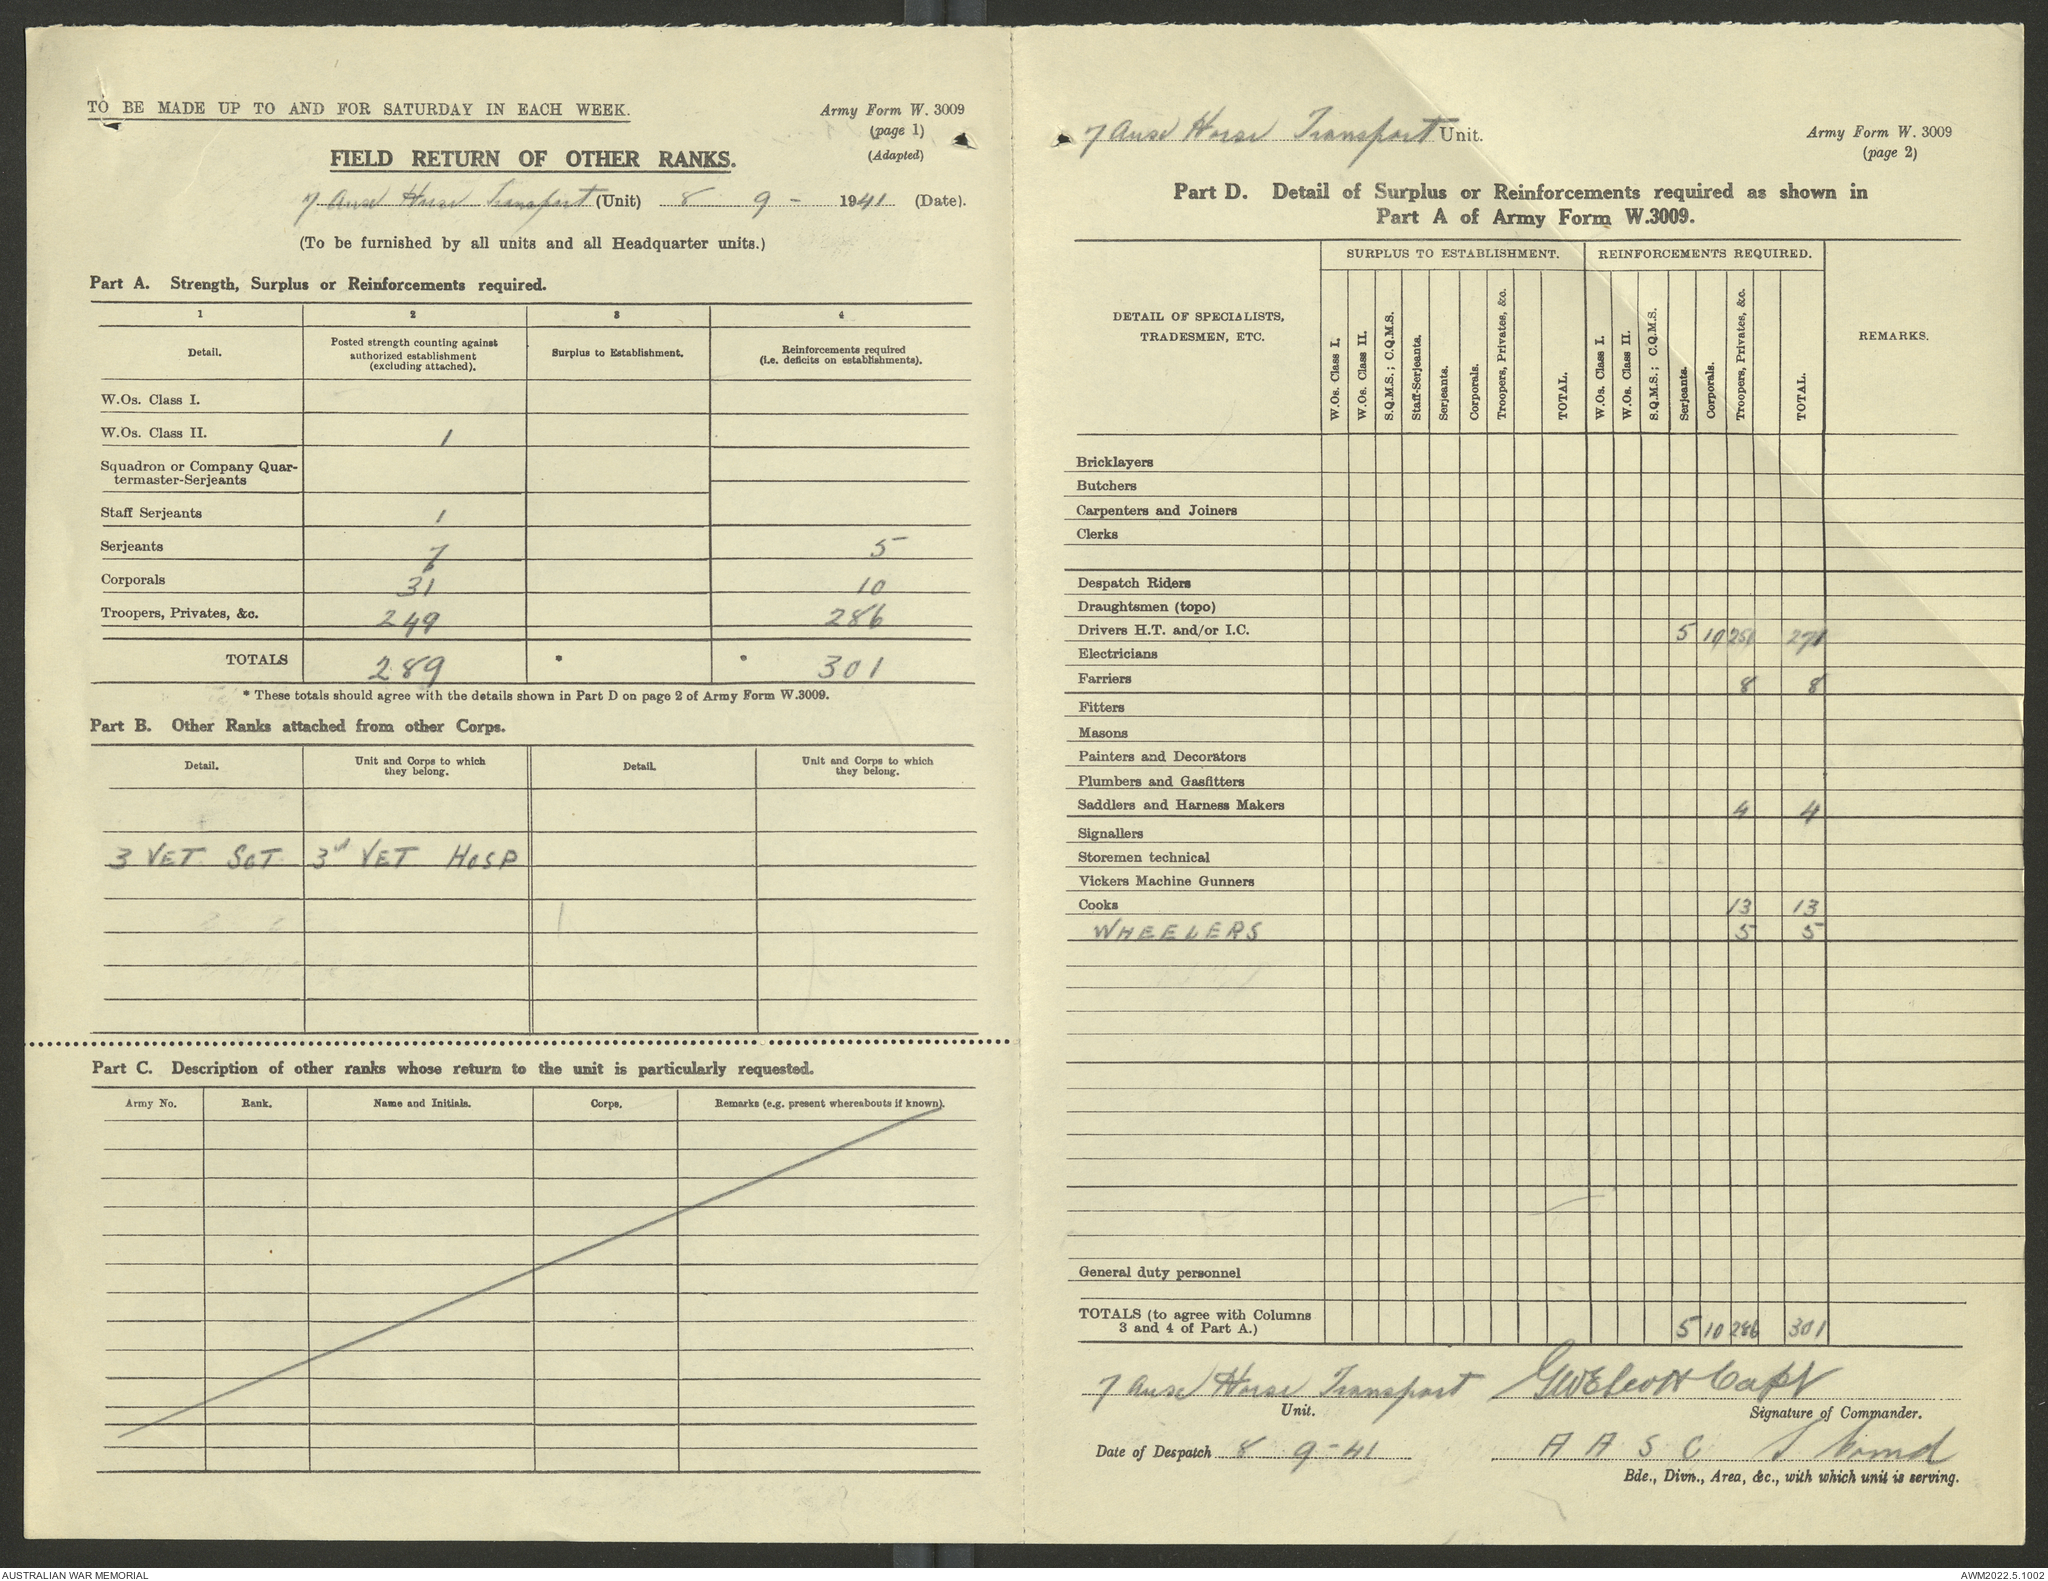 TO BE MADE UP TO AND FOR SATURDAY IN EACH WEEK.
Army Form W. 3009
(page 1)
(Adapted)
FIELD RETURN OF OTHER RANKS.
7 Aust Horse Transport (Unit) 8 9 - 1941 (Date).
(To be furnished by all units and all Headquarter units.)
Part A. Strength, Surplus or Reinforcements required.
1 2 3 4
Detail. Posted strength counting against authorized establishment (excluding attached). Surplus to Establishment. Reinforcements required (i.e. deficits on establishments).
W.Os. Class I.
W.Os. Class II. 1
Squadron or Company Quar-
termaster-Serjeants
Staff Serjeants 1
Serjeants 7 5
Corporals 31 10
Troopers, Privates, &c. 249 286
TOTALS 289 * * 301
* These totals should agree with the details shown in Part D on page 2 of Army Form W.3009.
Part B. Other Ranks attached from other Corps.
Detail. Unit and Corps to which they belong. Detail. Unit and Corps to which they belong.
3 VET SGT 3rd VET HOSP
Part C. Description of other ranks whose return to the unit is particularly requested.
Army No. Rank. Name and Initials. Corps. Remarks (e.g. present whereabouts if known).
7 Aust Horse Transport Unit.
Army Form W. 3009
(page 2)
Part D. Detail of Surplus or Reinforcements required as shown in
Part A of Army Form W.3009.
DETAIL OF SPECIALISTS, TRADESMEN, ETC.
SURPLUS TO ESTABLISHMENT. REINFORCEMENTS REQUIRED.
REMARKS.
W.Os. Class I. W.Os. Class II. S.Q.M.S.; C.Q.M.S. Staff-Serjeants. Serjeants. Corporals. Troopers, Privates, &c. TOTAL. W.Os. Class I. W.Os. Class II. S.Q.M.S.; C.Q.M.S. Serjeants. Corporals. Troopers, Privates, &c. TOTAL.
Bricklayers
Butchers
Carpenters and Joiners
Clerks
Despatch Riders
Draughtsmen (topo)
Drivers H.T. and/or I.C. 5 10 256 271
Electricians
Farriers 8 8
Fitters
Masons
Painters and Decorators
Plumbers and Gasfitters
Saddlers and Harness Makers 4 4
Signallers
Storemen technical
Vickers Machine Gunners
Cooks 13 13
WHEELERS 5 5
General duty personnel
TOTALS (to agree with Columns
3 and 4 of Part A.) 5 10 286 301
7 Aust Horse Transport Capt
Unit. Signature of Commander.
Date of Despatch 8 9-41 A A S C
Bde., Divn., Area, &c., with which unit is serving.
AUSTRALIAN WAR MEMORIAL
AWM2022.5.1002